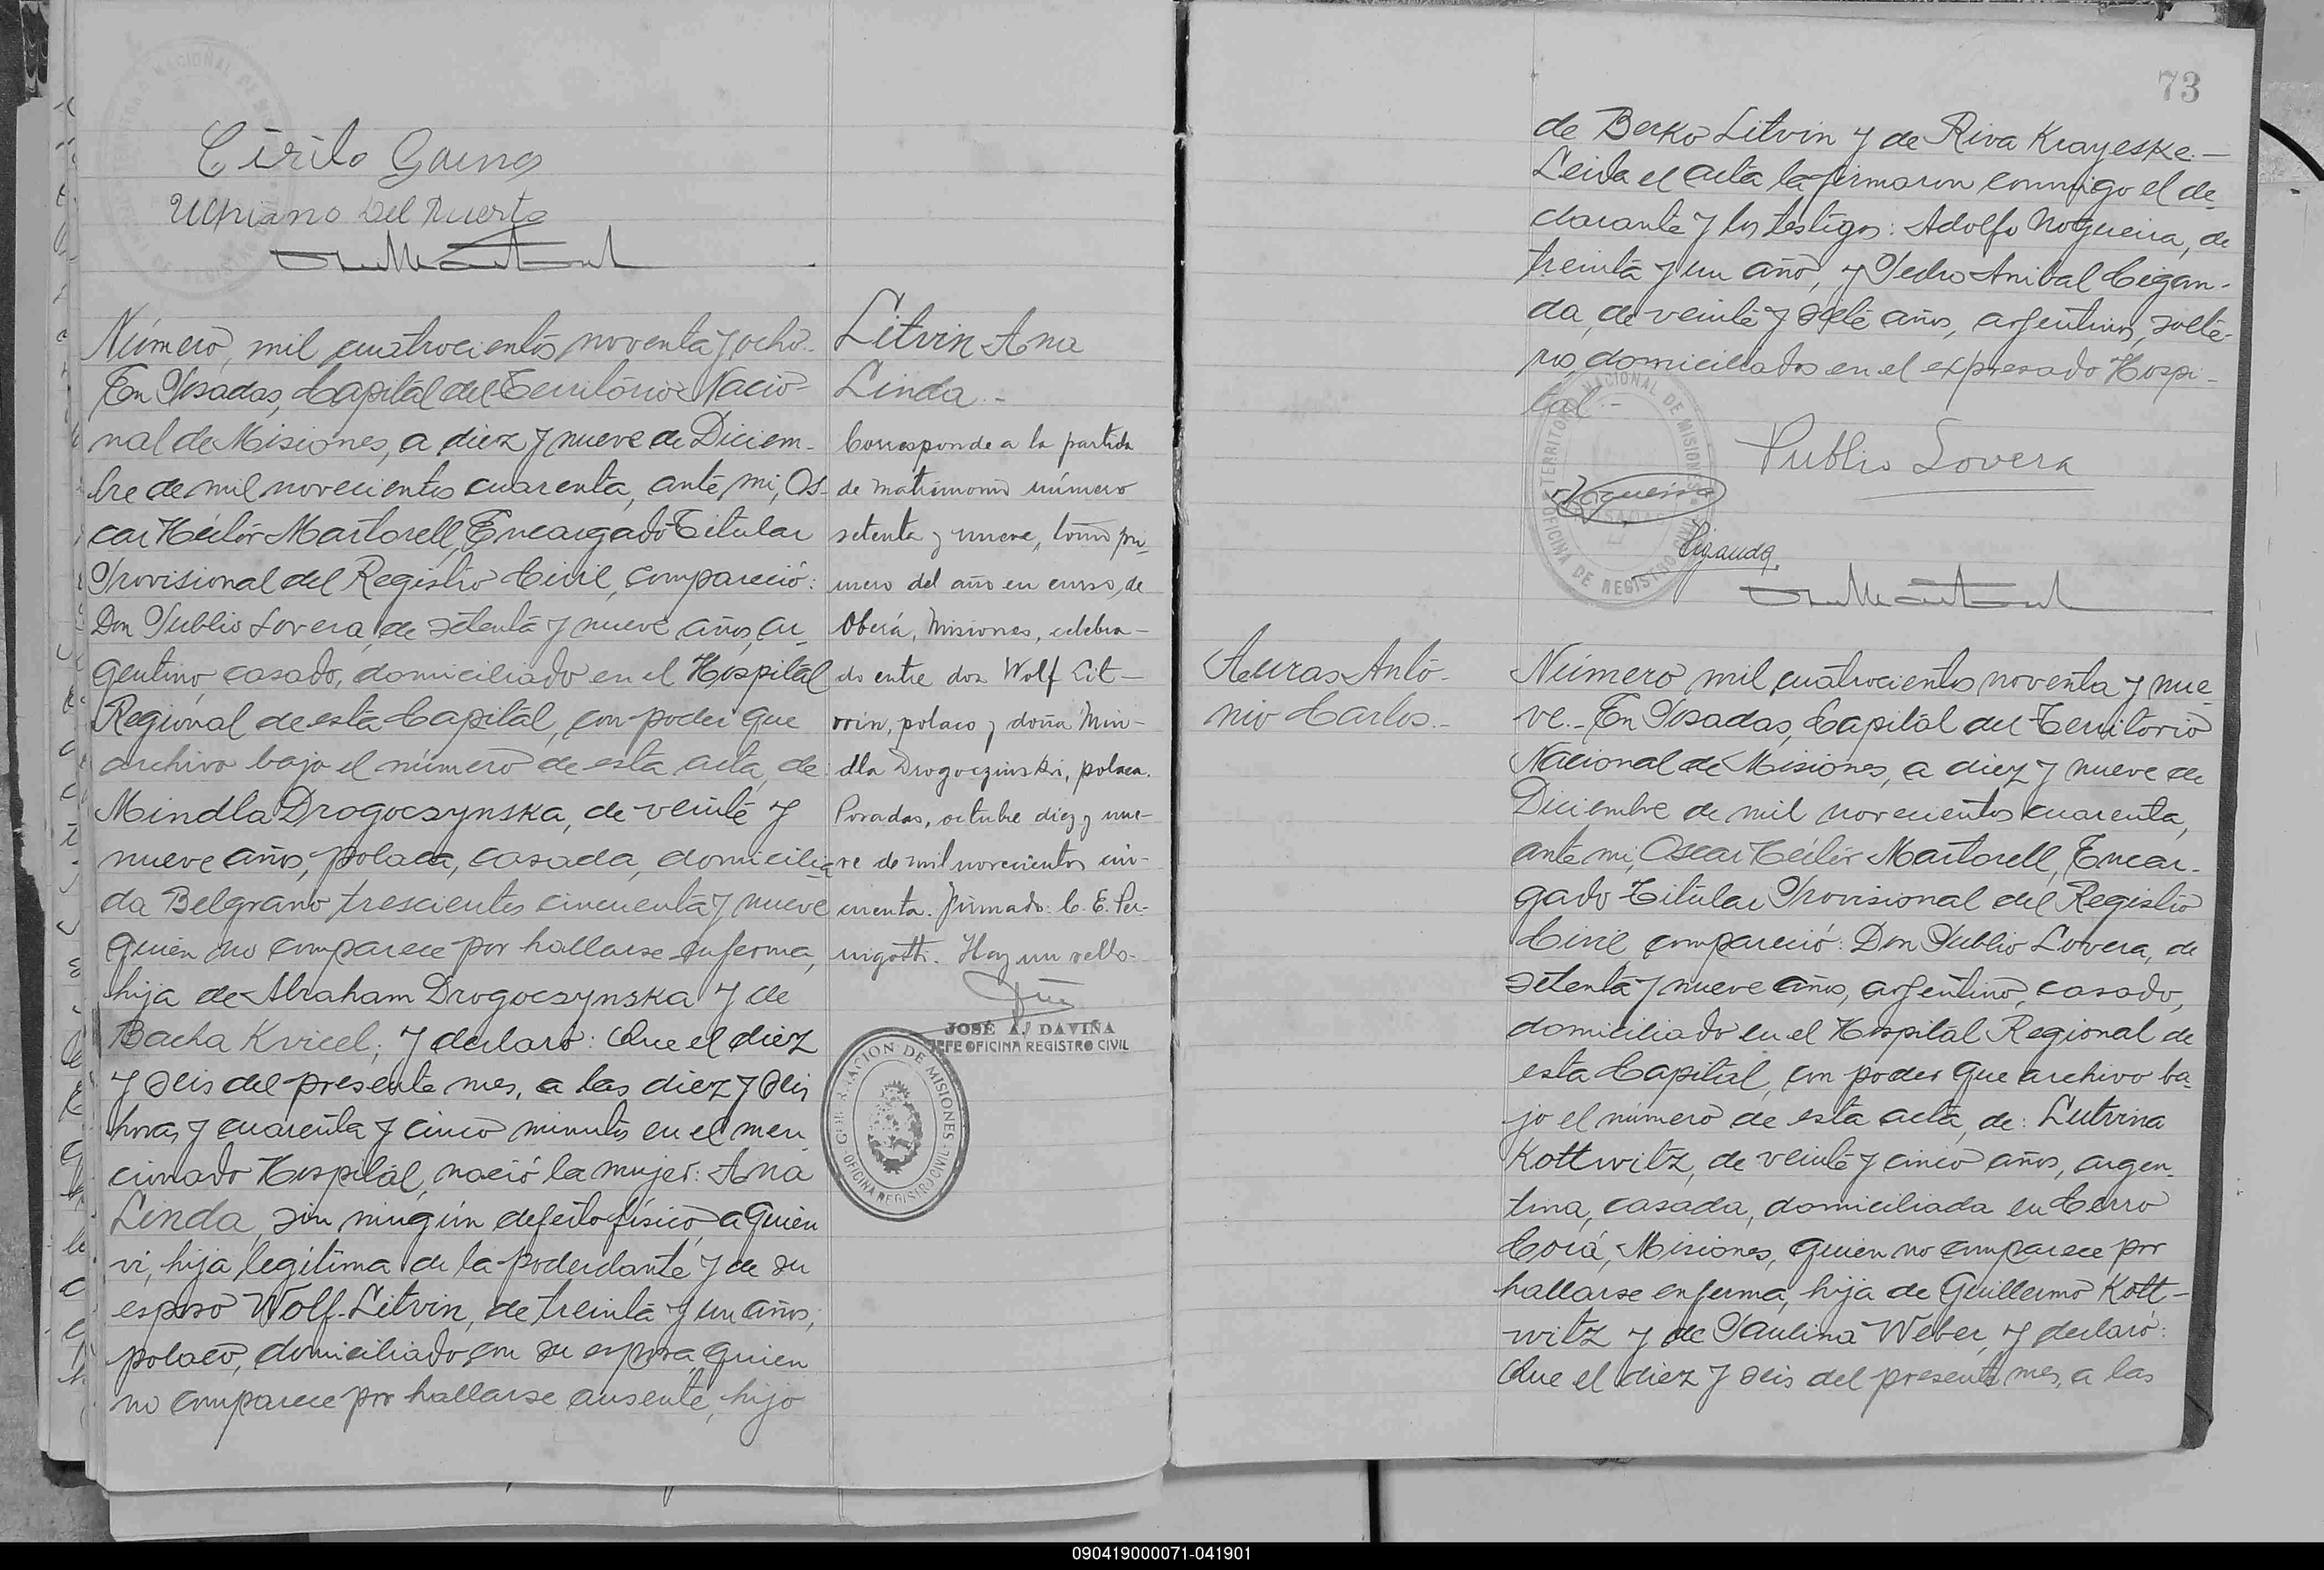 Cirilo Gauna
Ulpiano Del Puerto
Número, mil cuatrocientos noventa y ocho.
En Posadas, Capital del Territorio Nacio-
nal de Misiones, a diez y nueve de Diciem-
bre de mil novecientos cuarenta, ante mi, Os-
car Héctor Martorell, Encargado Titular
Provisional del Registro Civil, compareció:
Don Publio Lovera, de setenta y nueve años, ar
gentino, casado, domiciliado en el Hospital
Regional de esta Capital, con poder que
archivo bajo el número de esta acta, de
Mindla Drogoczynska, de veinte y
nueve años, polaca, casada, domicilia
da Belgrano trescientos cincuenta y nueve
quien no comparece por hallarse enferma,
hija de Abraham Drogoczynska y de
Bacha Kvicel; y declaró: Que el diez
y seis del presente mes, a las diez y seis
horas y cuarenta y cinco minutos en el men
cionado Hospital, nació la mujer: Ana
Linda, sin ningún defecto físico, a quien
vi, hija legítima de la poderdante y de su
esposo Wolf Litvin, de treinta y un años,
polaco, domiciliado con su esposa, quien
no comparece por hallarse ausente, hijo
Litvin Ana
Linda.-
Corresponde a la partida
de matrimonio número
setenta y nueve, tomo pri-
mero del año en curso, de
Oberá, Misiones, celebra-
do entre don Wolf Lit-
vin, polaco y doña Min-
dla Drogoczinski, polaca.
Posadas, octubre diez y nue-
ve de mil novecientos cin-
cuenta. Firmado: C. E. Per-
nigotti. Hay un sello.
JOSÉ A. DAVIÑA
JEFE OFICINA REGISTRO CIVIL
GOBERNACION DE MISIONES
OFICINA REGISTRO CIVIL
73
de Berko Litvin y de Riva Krayeske.-
Leida el acta la firmaron conmigo el de-
clarante y los testigos: Adolfo Nogueira, de
treinta y un año, y Pedro Anibal Cigan-
da, de veinte y siete años, argentinos, solte-
ros, domiciliados en el expresado Hospi-
tal.-
TERRITORIO NACIONAL DE MISIONES
OFICINA DE REGISTRO CIVIL
POSADAS
Publio Lovera
Nogueira
Ciganda
Auras Anto-
nio Carlos.-
Número mil cuatrocientos noventa y nue
ve.- En Posadas, Capital del Territorio
Nacional de Misiones, a diez y nueve de
Diciembre de mil novecientos cuarenta,
ante mi, Oscar Héctor Martorell, Encar-
gado Titular Provisional del Registro
Civil, compareció: Don Publio Lovera, de
setenta y nueve años, argentino, casado,
domiciliado en el Hospital Regional de
esta Capital, con poder que archivo ba-
jo el número de esta acta, de: Lutvina
Kottwitz, de veinte y cinco años, argen-
tina, casada, domiciliada en Cerro
Corá, Misiones, quien no comparece por
hallarse enferma, hija de Guillermo Kott-
witz y de Paulina Weber, y declaró:
Que el diez y seis del presente mes, a las
090419000071-041901